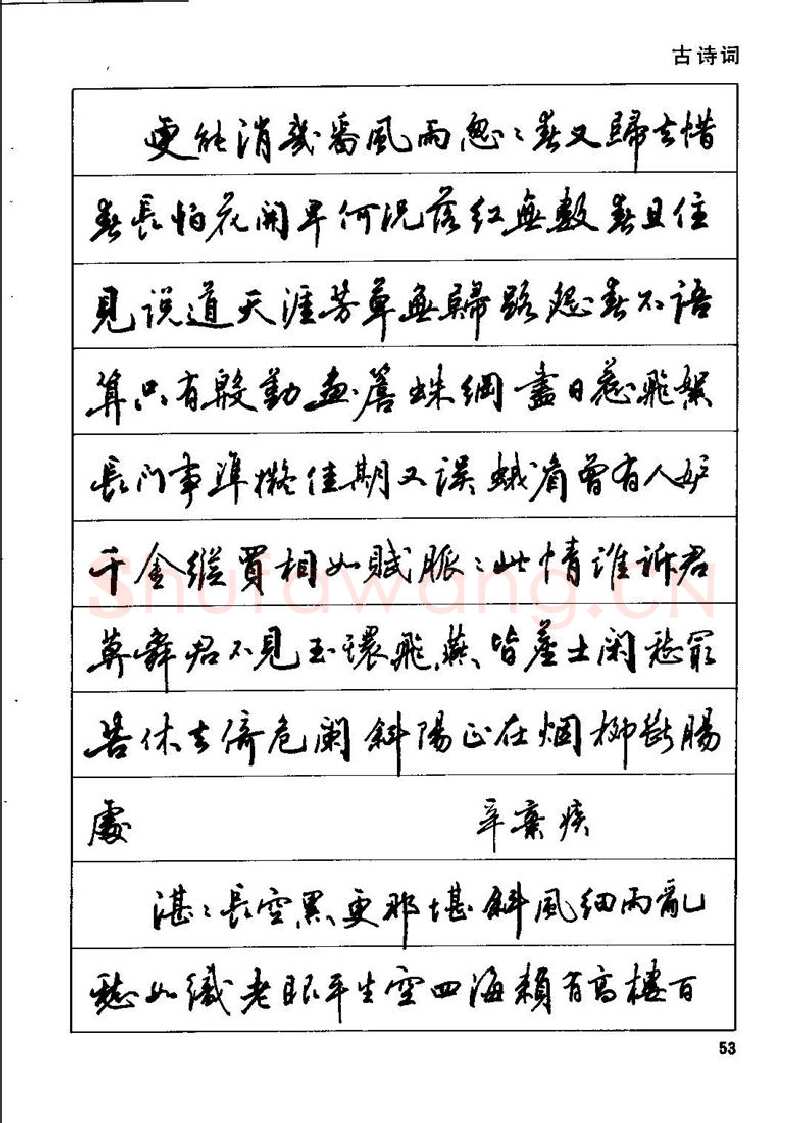 古诗词
更能消幾番風雨怱〻春又歸去惜
春長怕花開早何況落紅無數春且住
見説道天涯芳草無歸路怨春不語
算只有殷勤畫簷蛛網盡日惹飛絮
長门事準擬佳期又誤蛾眉曾有人妒
千金縱買相如賦脈〻此情誰訴君
莫舞君不見玉環飛燕皆塵土闲愁最
苦休去倚危闌斜陽正在烟柳斷腸
處 辛棄疾
湛〻長空黑更那堪斜風細雨亂
愁如織老眼平生空四海賴有高樓百
53
Shufawang.CN